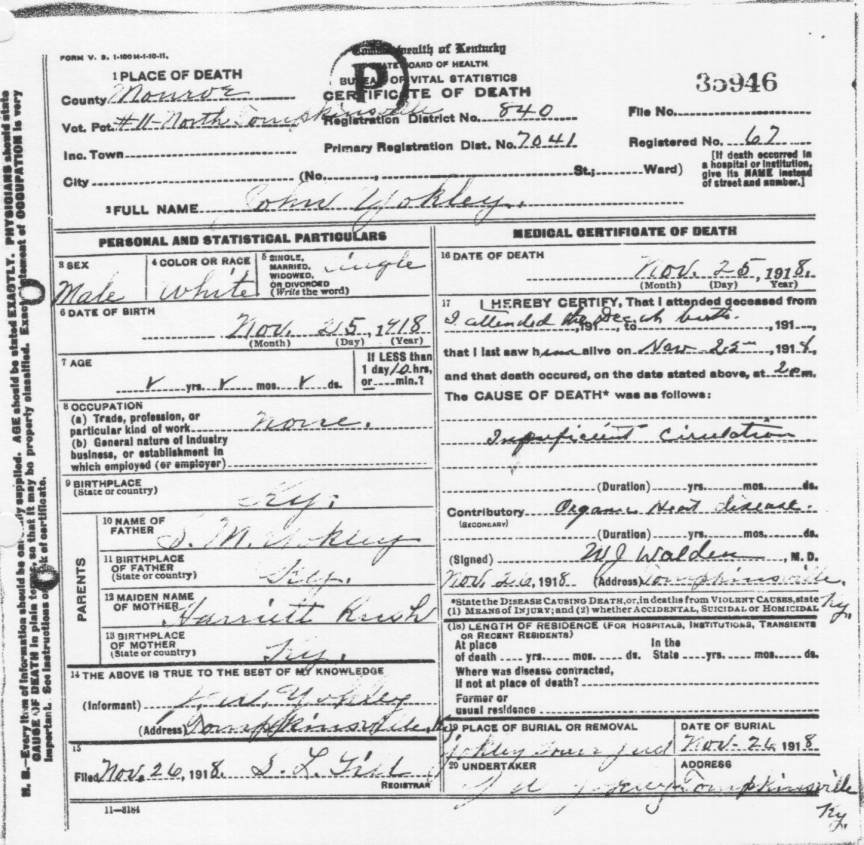 FORM V. S. 1-100M-1-10-11.
Commonwealth of Kentucky
STATE BOARD OF HEALTH
BUREAU OF VITAL STATISTICS
CERTIFICATE OF DEATH
P
35946
1 PLACE OF DEATH
County Monroe
Vot. Pct. #11-North Tompkinsville
Registration District No. 840
File No.
Inc. Town
Primary Registration Dist. No. 7041
Registered No. 67
City (No. , St.; Ward)
[If death occurred in
a hospital or institution,
give its NAME instead
of street and number.]
2 FULL NAME John Yokley.
PERSONAL AND STATISTICAL PARTICULARS
3 SEX
Male
4 COLOR OR RACE
White
5 SINGLE,
MARRIED,
WIDOWED,
OR DIVORCED
(Write the word)
Single
6 DATE OF BIRTH
Nov. 25, 1918
(Month) (Day) (Year)
7 AGE
yrs. mos. ds.
If LESS than
1 day 10 hrs,
or min.?
8 OCCUPATION
(a) Trade, profession, or
particular kind of work None.
(b) General nature of industry
business, or establishment in
which employed (or employer)
9 BIRTHPLACE
(State or country)
Ky.
PARENTS
10 NAME OF
FATHER
M. Yokley
11 BIRTHPLACE
OF FATHER
(State or country)
Ky.
12 MAIDEN NAME
OF MOTHER
Harriett Kush
13 BIRTHPLACE
OF MOTHER
(State or country)
Ky.
14 THE ABOVE IS TRUE TO THE BEST OF MY KNOWLEDGE
(Informant) Yokley
(Address) Tompkinsville, Ky
15
Filed Nov. 26, 1918. S. L.
REGISTRAR
11-3184
MEDICAL CERTIFICATE OF DEATH
16 DATE OF DEATH
Nov. 25, 1918.
(Month) (Day) Year)
17 I HEREBY CERTIFY, That I attended deceased from
I attended the birth. , 191 , to , 191 ,
that I last saw him alive on Nov 25 , 1918,
and that death occured, on the date stated above, at 2 pm.
The CAUSE OF DEATH* was as follows:
Insufficient Circulation
(Duration) yrs. mos. ds.
Contributory Organic Heart disease.
(SECONDARY)
(Duration) yrs. mos. ds.
(Signed) W J Walden , M. D.
Nov. 26, 1918 (Address) Tompkinsville, Ky.
*State the DISEASE CAUSING DEATH, or, in deaths from VIOLENT CAUSES, state
(1) MEANS OF INJURY; and (2) whether ACCIDENTAL, SUICIDAL OR HOMICIDAL
(18) LENGTH OF RESIDENCE (FOR HOSPITALS, INSTITUTIONS, TRANSIENTS
OR RECENT RESIDENTS)
At place In the
of death yrs. mos. ds. State yrs. mos. ds.
Where was disease contracted,
If not at place of death?
Former or
usual residence
19 PLACE OF BURIAL OR REMOVAL
Yokley
DATE OF BURIAL
Nov-26, 1918
20 UNDERTAKER
ADDRESS
Tompkinsville
Ky.
N. B.—Every item of information should be carefully supplied. AGE should be stated EXACTLY. PHYSICIANS should state
CAUSE OF DEATH in plain terms, so that it may be properly classified. Exact statement of OCCUPATION is very
important. See instructions on back of certificate.